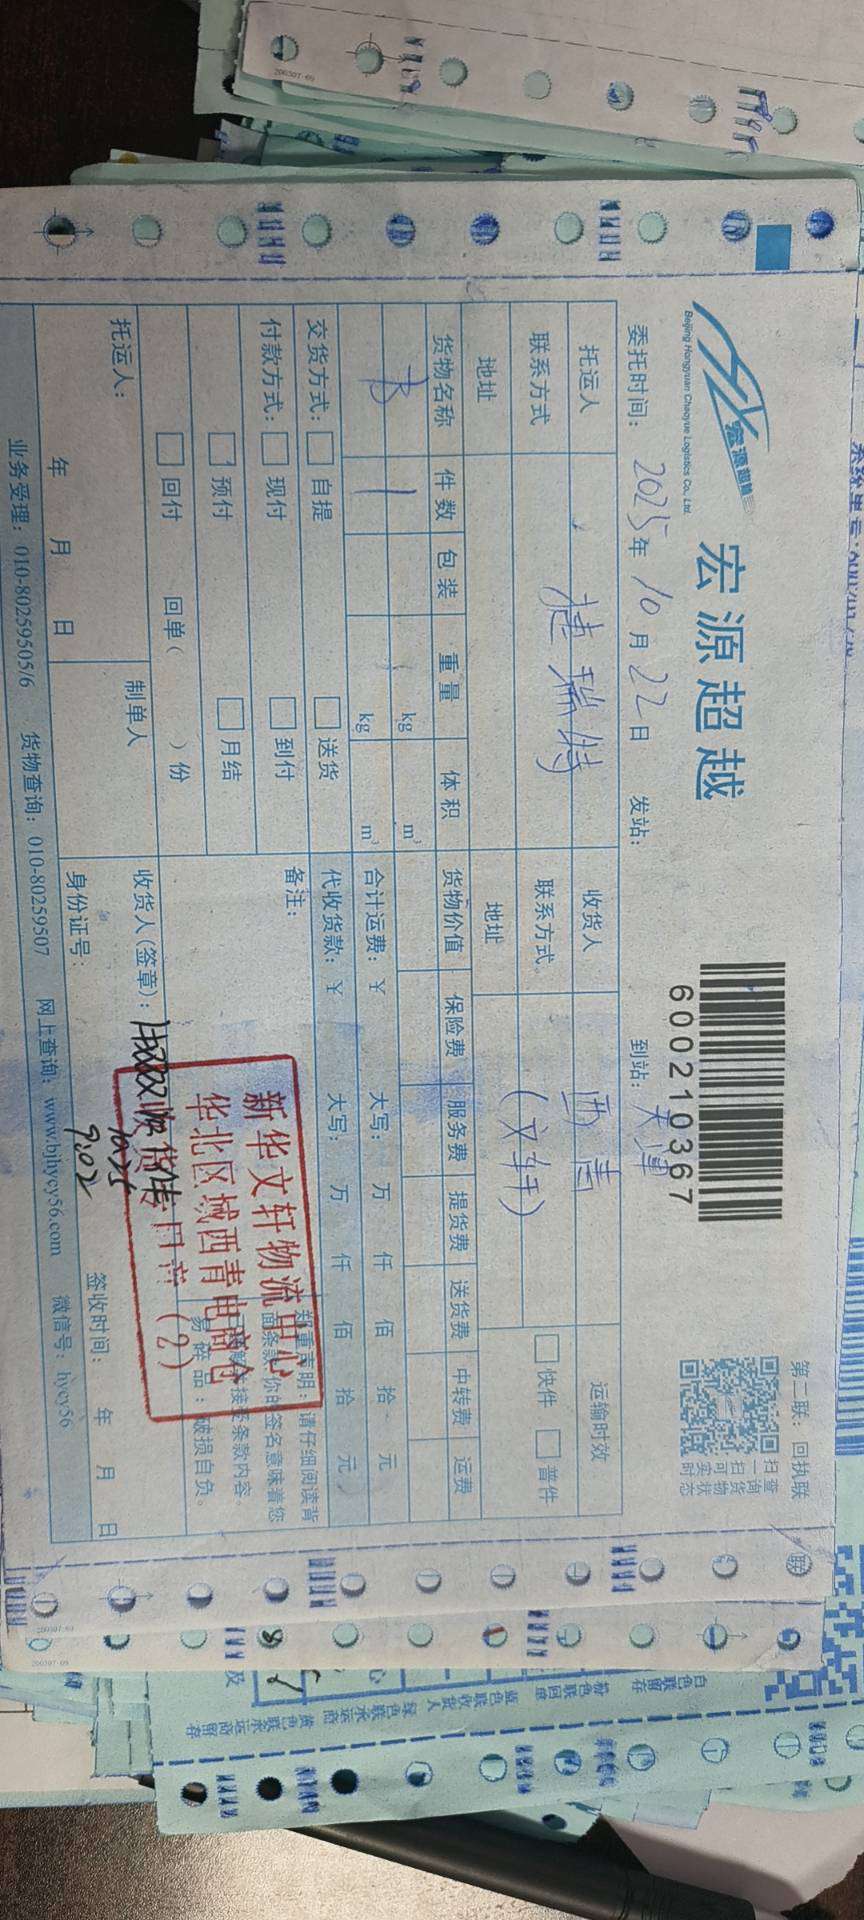 宏源超越
Beijing Hongyuan Chaoyue Logistics Co., Ltd.
宏源超越
600210367
第二联：回执联
扫一扫可实时
查询货物状态
委托时间：2025年10月22日 发站： 到站：天津
托运人 捷瑞特 收货人 西青 运输时效
联系方式 联系方式 (文轩) 快件 普件
地址 地址
货物名称 件数 包装 重量 体积 货物价值 保险费 服务费 提货费 送货费 中转费 运费
书 1 kg m³
kg m³ 合计运费：¥ 大写： 万 仟 佰 拾 元
交货方式： 自提 送货 代收货款：¥ 大写： 万 仟 佰 拾 元
付款方式： 现付 到付 备注：
预付 月结
回付 回单( )份
郑重声明：请仔细阅读背
面条款，你的签名意味着您
接受条款内容。
易碎品：破损自负。
新华文轩物流中心
华北区域西青电商仓
收货专用章（2）
托运人： 制单人 收货人(签章)：
10.25
9:02
年 月 日 身份证号： 签收时间： 年 月 日
业务受理：010-80259505/6 货物查询：010-80259507 网上查询：www.bjhycy56.com 微信号：hycy56